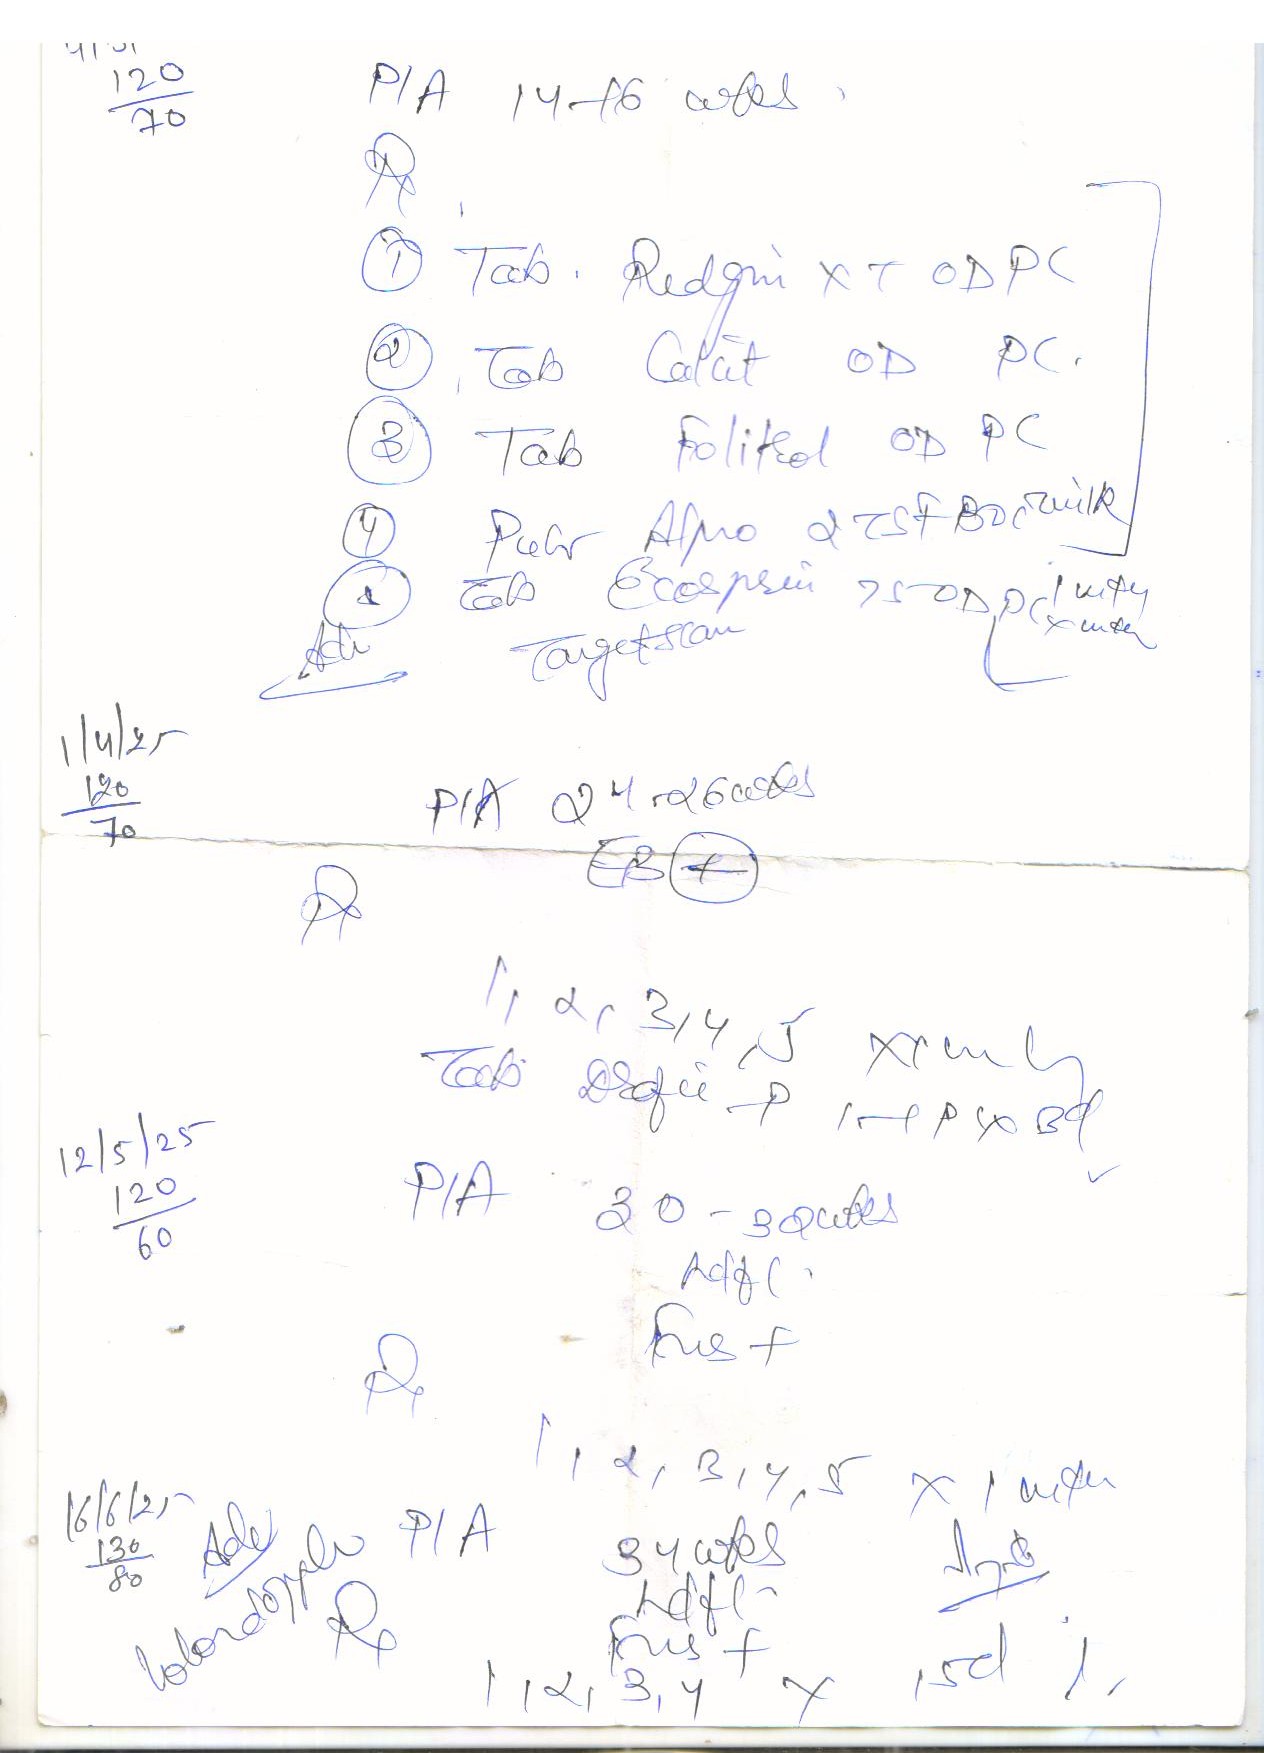 120
70
P/A 14-16 wks.
Rx
① Tab. Redgin XT OD PC
② Tab Calcit OD PC.
③ Tab OD PC
④ Pwdr Alpro 2 TSF BD c milk
⑤ Tab Ecosprin 75 OD PC 1 mth
x mth
Adv Target scan
1/4/25
120
70
P/A 24-26 wks
EB +
Rx
1, 2, 3, 4, 5 x 1 m
Tab P
12/5/25
120
60
P/A 30-32 wks
FHS +
Rx
1, 2, 3, 4, 5 x 1 mth
16/6/25
130
80
Adv
Colordoppler
P/A 34 wks
FHS +
Rx
1, 2, 3, 4 x 15d